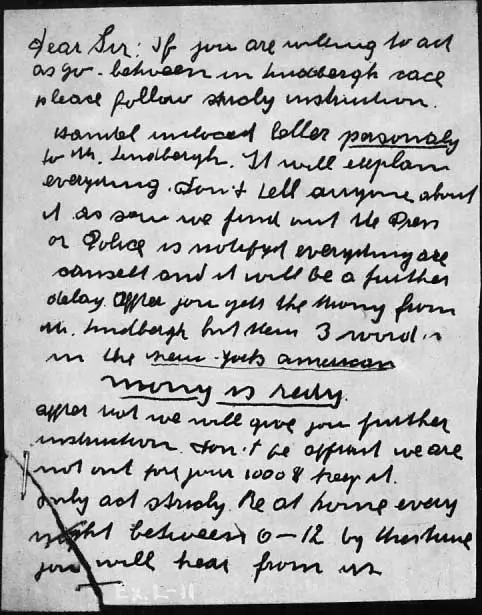 Dear Sir: If you are willing to act
as go-between in Lindbergh cace
pleace follow stricly instruction.
Handel incloced letter personaly
to Mr. Lindbergh. It will explain
everything. Don't tell anyone about
it as son we find out the Press
or Police is notifyd everything are
cansell and it will be a further
delay. Affter you gett the mony from
Mr. Lindbergh put them 3 words
in the New-York american
Mony is redy.
Affter not we will give you further
instruction. Don't be affrait we are
not out for your 1000 $ keep it.
Only act stricly. Be at home every
night between 6–12 by this time
you will hear from us
Ex. L-11